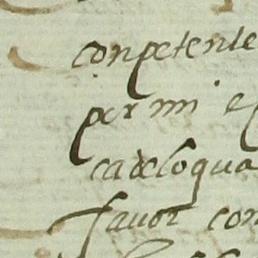 conpetente
per mi e
cadeloqua
favor con